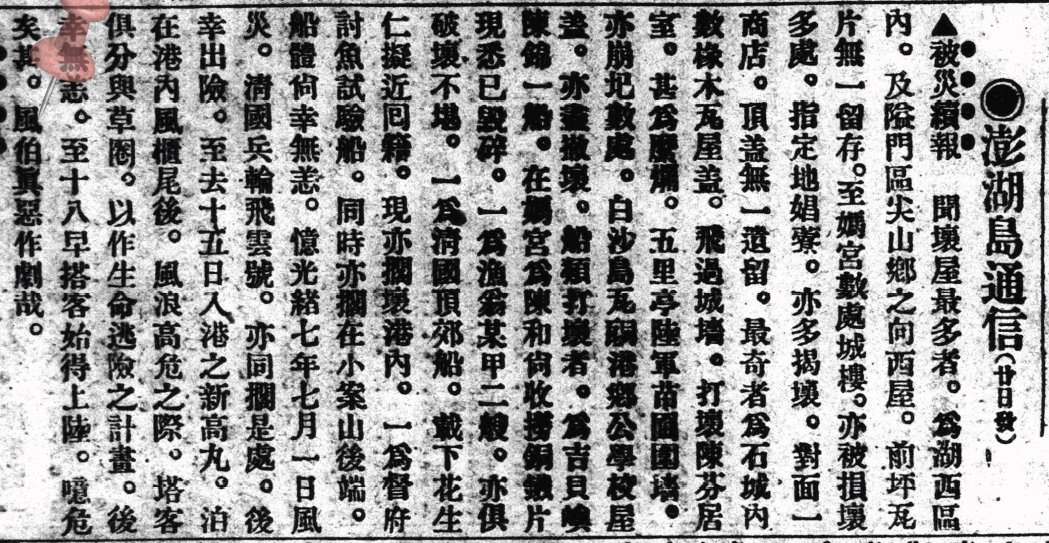 ◉澎湖島通信(廿日發)
▲被災續報　聞壞屋最多者。爲湖西區
內。及隘門區尖山鄉之向西屋。前坪瓦
片無一留存。至媽宮數處城樓。亦被損壞
多處。指定地娼寮。亦多揭壞。對面一
商店。頂盖無一遺留。最奇者爲石城內
數椽木瓦屋盖。飛過城墻。打壞陳芬居
室。甚爲糜爛。五里亭陸軍苗圃圍墻。
亦崩圯數處。白沙島瓦硐港鄉公學校屋
盖。亦盡撤壞。船類打壞者。爲吉貝嶼
陳錦一船。在媽宮爲陳和尙收撈銅鐵片
現悉已毀碎。一爲漁翁某甲二艘。亦俱
破壞不堪。一爲淸國頂郊船。載下花生
仁擬近囘籍。現亦擱壞港內。一爲督府
討魚試驗船。同時亦擱在小案山後端。
船體尙幸無恙。憶光緒七年七月一日風
災。淸國兵輪飛雲號。亦同擱是處。後
幸出險。至去十五日入港之新高丸。泊
在港內風櫃尾後。風浪高危之際。塔客
俱分與草圈。以作生命逃險之計畫。後
幸無恙。至十八早搭客始得上陸。噫危
矣其。風伯眞惡作劇哉。